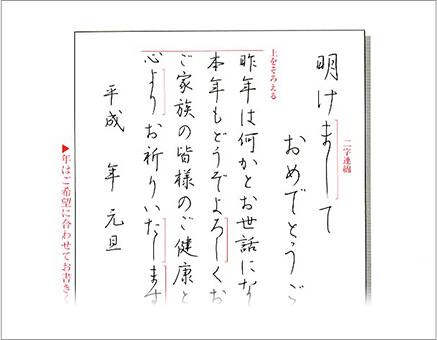 二字連綿
明けまして
おめでとうご
上をそろえる
昨年は何かとお世話にな
本年もどうぞよろしくお
ご家族の皆様のご健康と
心よりお祈りいたします
平成 年 元旦
▶年はご希望に合わせてお書きく